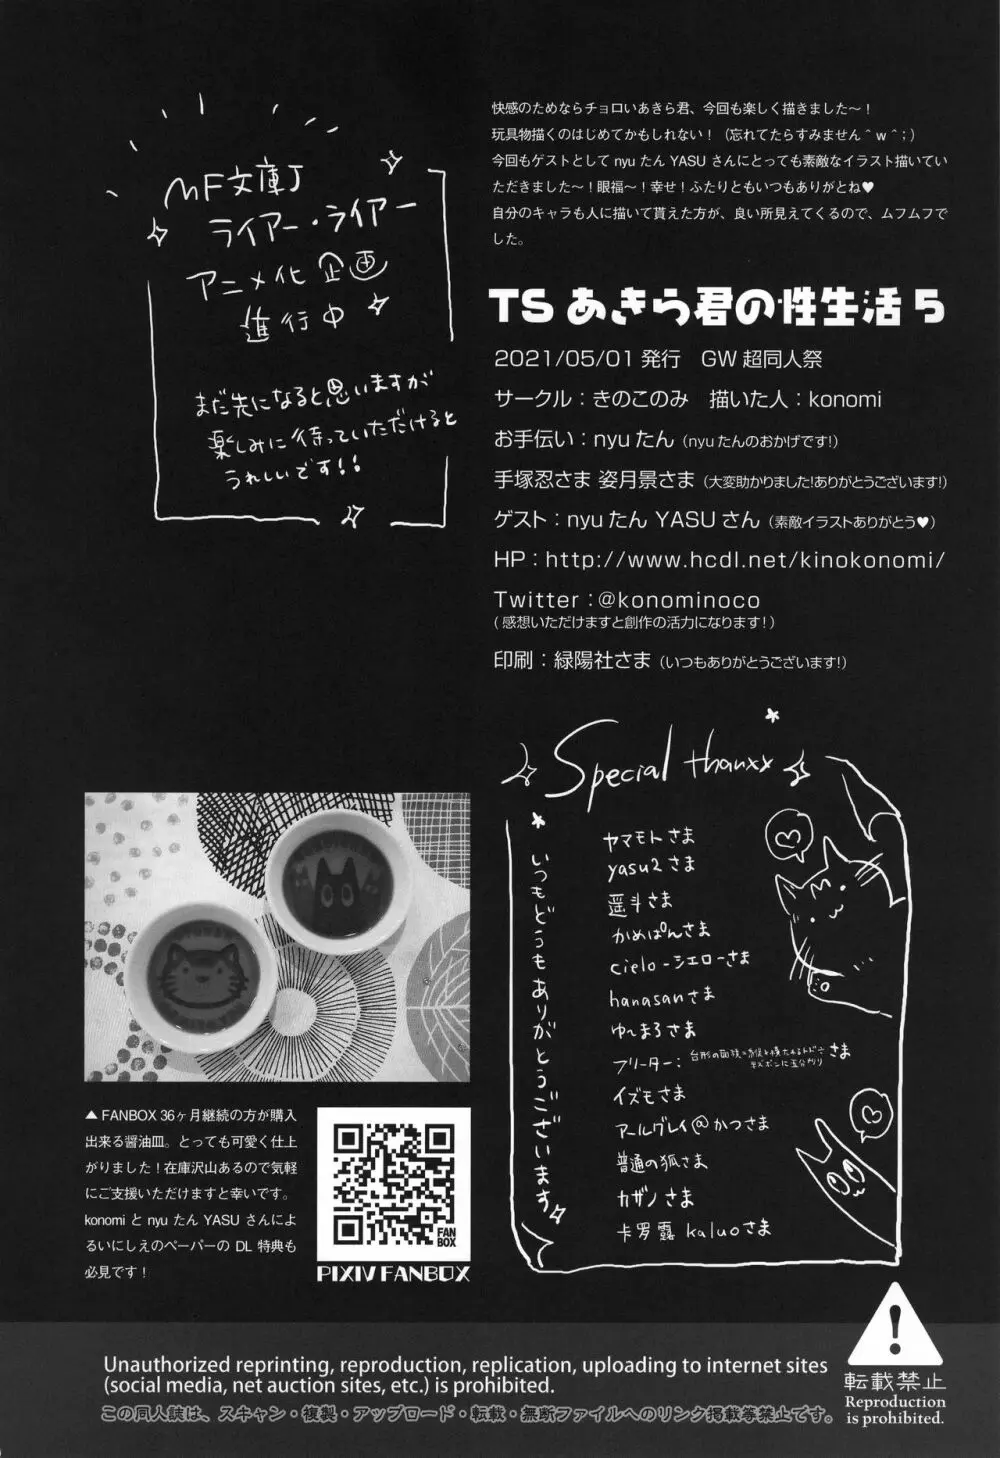 快感のためならチョロいあきら君、今回も楽しく描きました～！
玩具物描くのはじめてかもしれない！（忘れてたらすみません＾w＾；）
今回もゲストとして nyu たん YASU さんにとっても素敵なイラスト描いてい
ただきました～！眼福～！幸せ！ふたりともいつもありがとね♥
自分のキャラも人に描いて貰えた方が、良い所見えてくるので、ムフムフで
した。
MF文庫J
ライアー・ライアー
アニメ化 企画
進行中
まだ先になると思いますが
楽しみに待っていただけると
うれしいです!!
TS あきら君の性生活 5
2021/05/01 発行　GW 超同人祭
サークル：きのこのみ　描いた人：konomi
お手伝い：nyu たん（nyu たんのおかげです!）
手塚忍さま 姿月景さま（大変助かりました!ありがとうございます!）
ゲスト：nyu たん YASU さん（素敵イラストありがとう♥）
HP：http://www.hcdl.net/kinokonomi/
Twitter：@konominoco
（感想いただけますと創作の活力になります！）
印刷：緑陽社さま（いつもありがとうございます!）
Special thanxx
いつもどうもありがとうございます
ヤマモトさま
yasu2さま
遥斗さま
かめぱんさま
cielo-シエローさま
hanasanさま
ゆ～まろさま
フリーター：
さま
イズモさま
アールグレイ@かつさま
普通の狐さま
カザノさま
卡罗露 kaluoさま
▲ FANBOX 36ヶ月継続の方が購入
出来る醤油皿。とっても可愛く仕上
がりました！在庫沢山あるので気軽
にご支援いただけますと幸いです。
konomi と nyu たん YASU さんによ
るいにしえのペーパーの DL 特典も
必見です！
FAN
BOX
PIXIV FANBOX
Unauthorized reprinting, reproduction, replication, uploading to internet sites
(social media, net auction sites, etc.) is prohibited.
この同人誌は、スキャン・複製・アップロード・転載・無断ファイルへのリンク掲載等禁止です。
転載禁止
Reproduction
is prohibited.